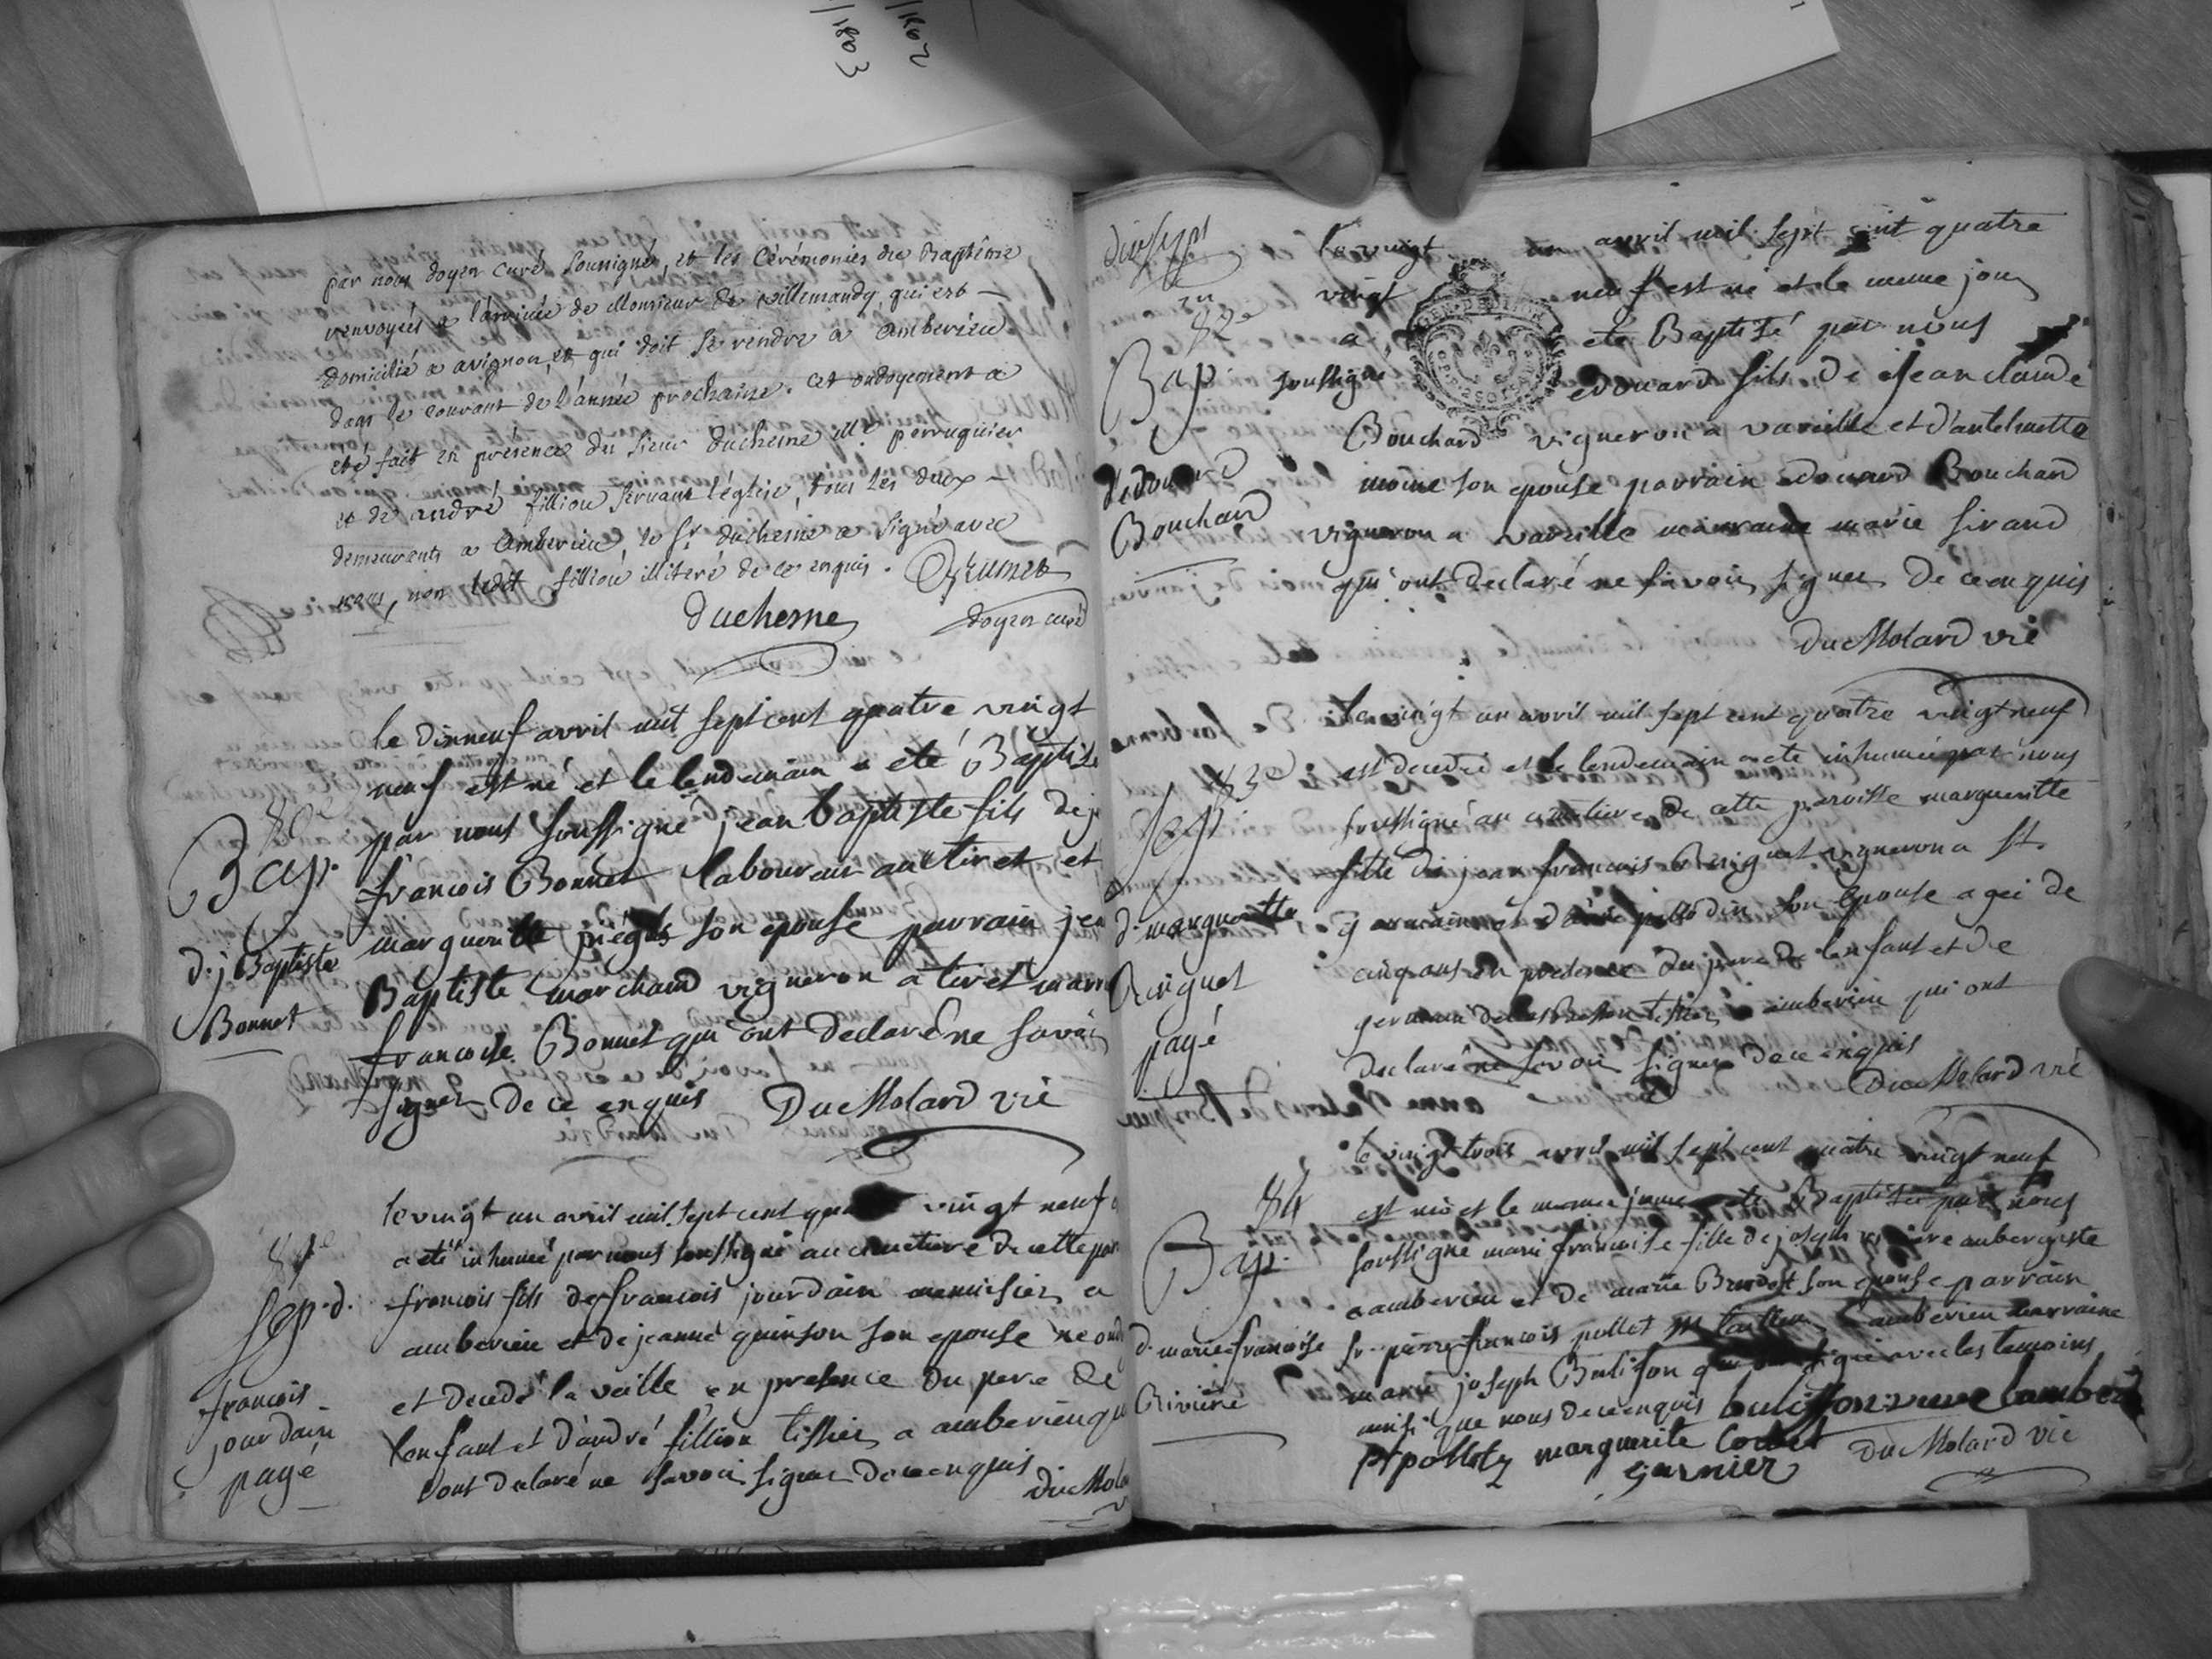 1802
1803
par nous doyen curé soussigné, et les cérémonies du Baptême
renvoyées a l'arrivée de Monsieur de villemandy qui est
domicilié a avignon, et qui doit se rendre a Amberieu
dans le courant de l'année prochaine. cet ondoyement a
eté fait en présence du sieur duchesne Me perruquier
et de andré fillion servant l'église, tous les deux
demeurants a Amberieu, le sr duchesne a signé avec
nous, non ledit fillion illiteré de ce enquis.
duchesne
doyen curé
le dixneuf avril mil sept cent quatre vingt
neuf est né et le lendemain a eté Baptisé
80e
Bap.
d. j Baptiste
Bonnet
par nous soussigné jean baptiste fils de j
francois Bonnet laboureur au tiret et
marguerite son epouse parrain jea
Baptiste marchand vigneron a tiret marr
francoise Bonnet qui ont declaré ne savoir
signer de ce enquis DuMolard vic
81e
Sep. d.
francois
jourdain
payé
le vingt un avril mil sept cent vingt neuf
a eté inhumé par nous soussigné au cimetiere de cette par
francois fils de francois jourdain menuisier a
amberieu et de jeanne quinson son epouse ne
et decedé la veille en presence du pere de
l'enfant et d'andré fillion tissier a amberieu qu
ont declaré ne savoir signer de ce enquis
DuMola
82e
Bap.
d'edouard
Bouchard
le vingt un avril mil sept cent quatre
vingt neuf est né et le meme jour
a eté Baptisé par nous
soussigné edouard fils de jean claude
Bouchard vigneron a vareille et d'anthelmette
moine son epouse parrain edouard Bouchard
vigneron a vareille marraine marie sirand
qui ont declaré ne savoir signer de ce enquis
DuMolard vic
83e
Sep.
d. margueritte
payé
le vingt un avril mil sept cent quatre vingt neuf
est decedée et le lendemain a eté inhumée par nous
soussigné au cimetiere de cette paroisse margueritte
fille de jean francois vigneron a St.
germain et son epouse agée de
cinq ans en presence du pere de l'enfant et de
germain tissier a amberieu qui ont
declaré ne savoir signer de ce enquis
DuMolard vic
84
Bap.
d. marie francoise
Riviere
le vingt trois avril mil sept cent quatre vingt neuf
est née et le meme jour a eté Baptisée par nous
soussigné marie francoise fille de joseph riviere aubergiste
a amberieu et de marie son epouse parrain
sr. pierre francois pollet amberieu marraine
marie joseph Bulifon signé avec les temoins
ainsi que nous de ce enquis
marguerite
garnier
DuMolard vic